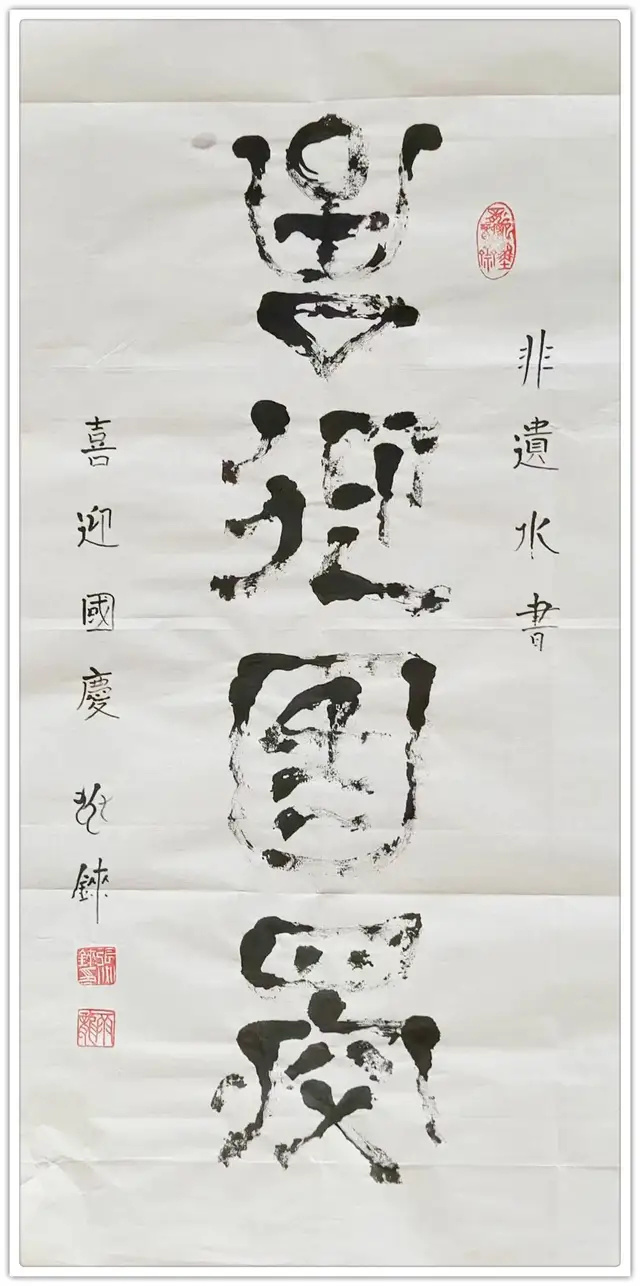 非遺水書
喜迎國慶
喜迎國慶